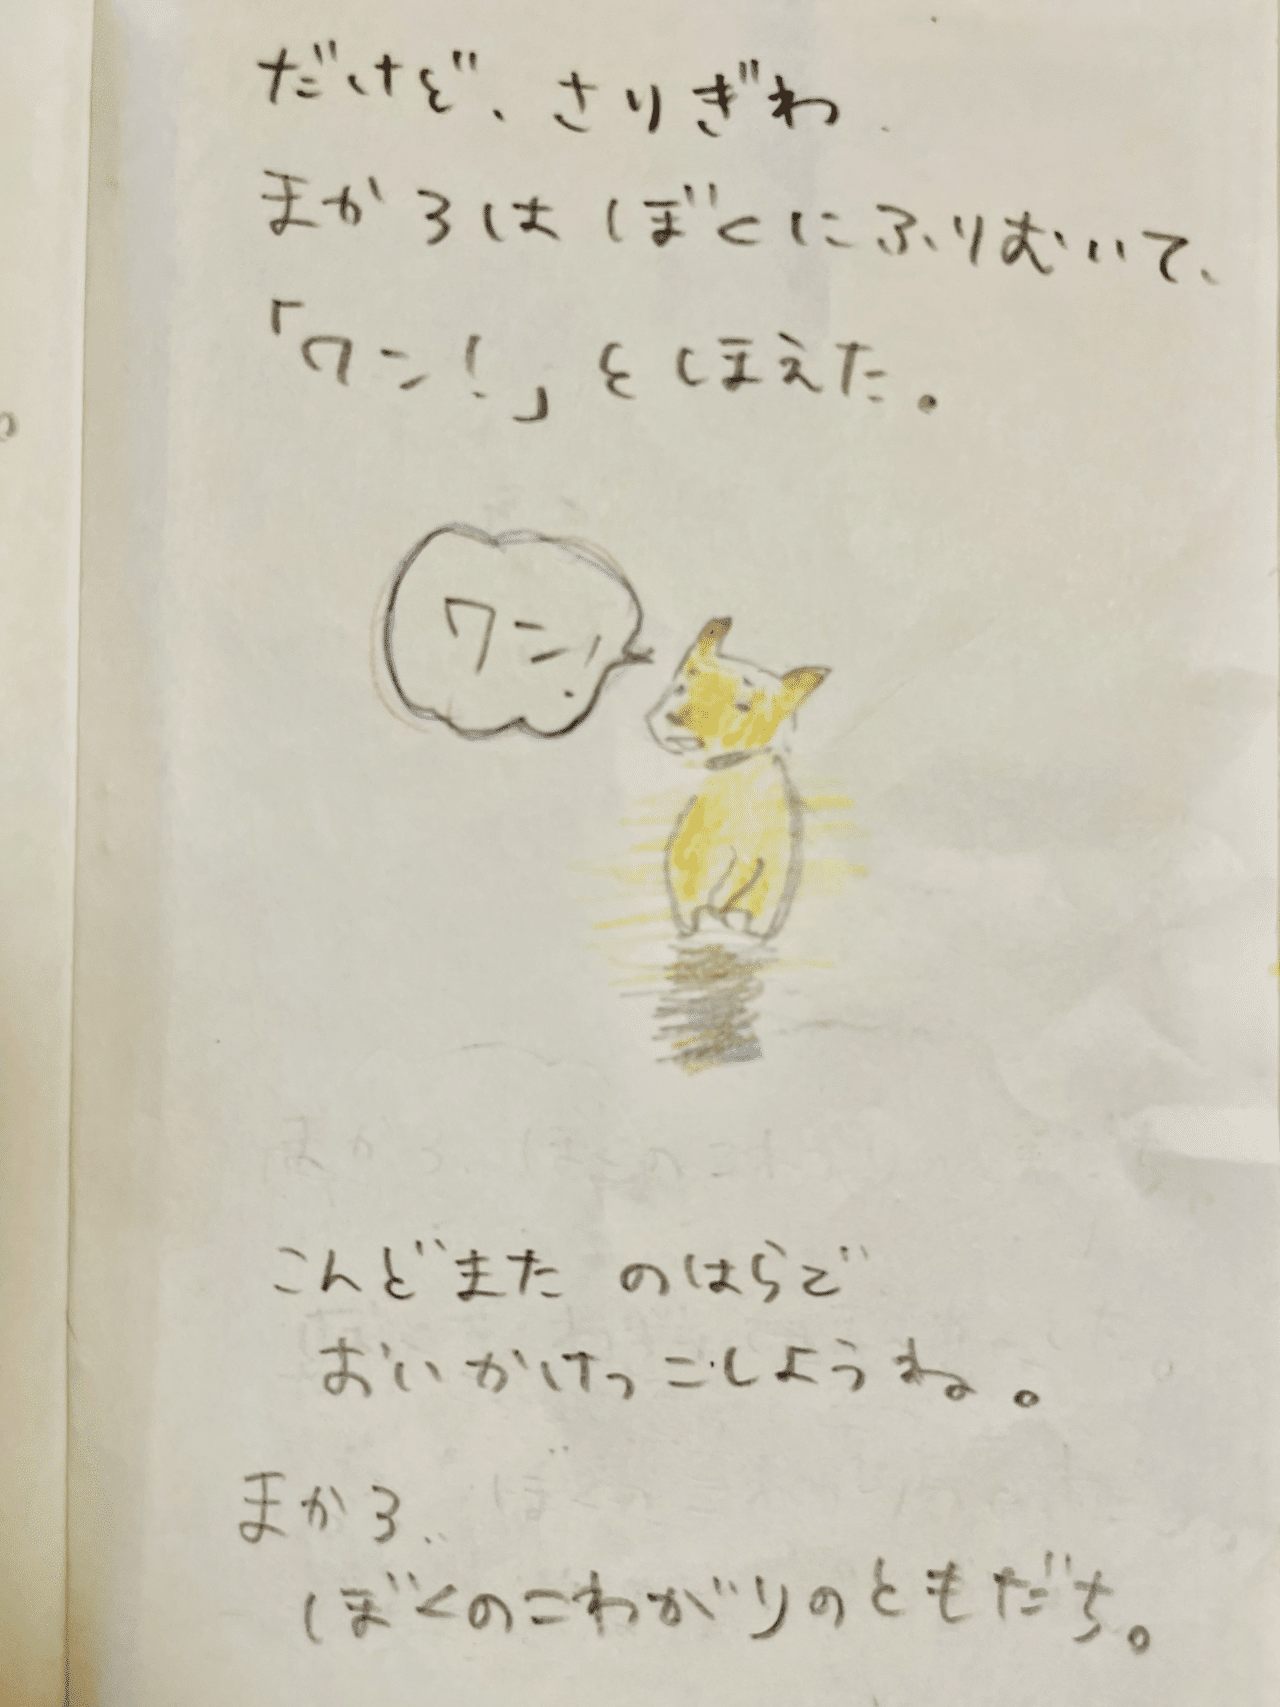 だけど、さりぎわ
まかろは ぼくにふりむいて、
「ワン！」とほえた。
ワン！
こんどまた のはらで
おいかけっこしようね。
まかろ、
ぼくのこわがりのともだち。